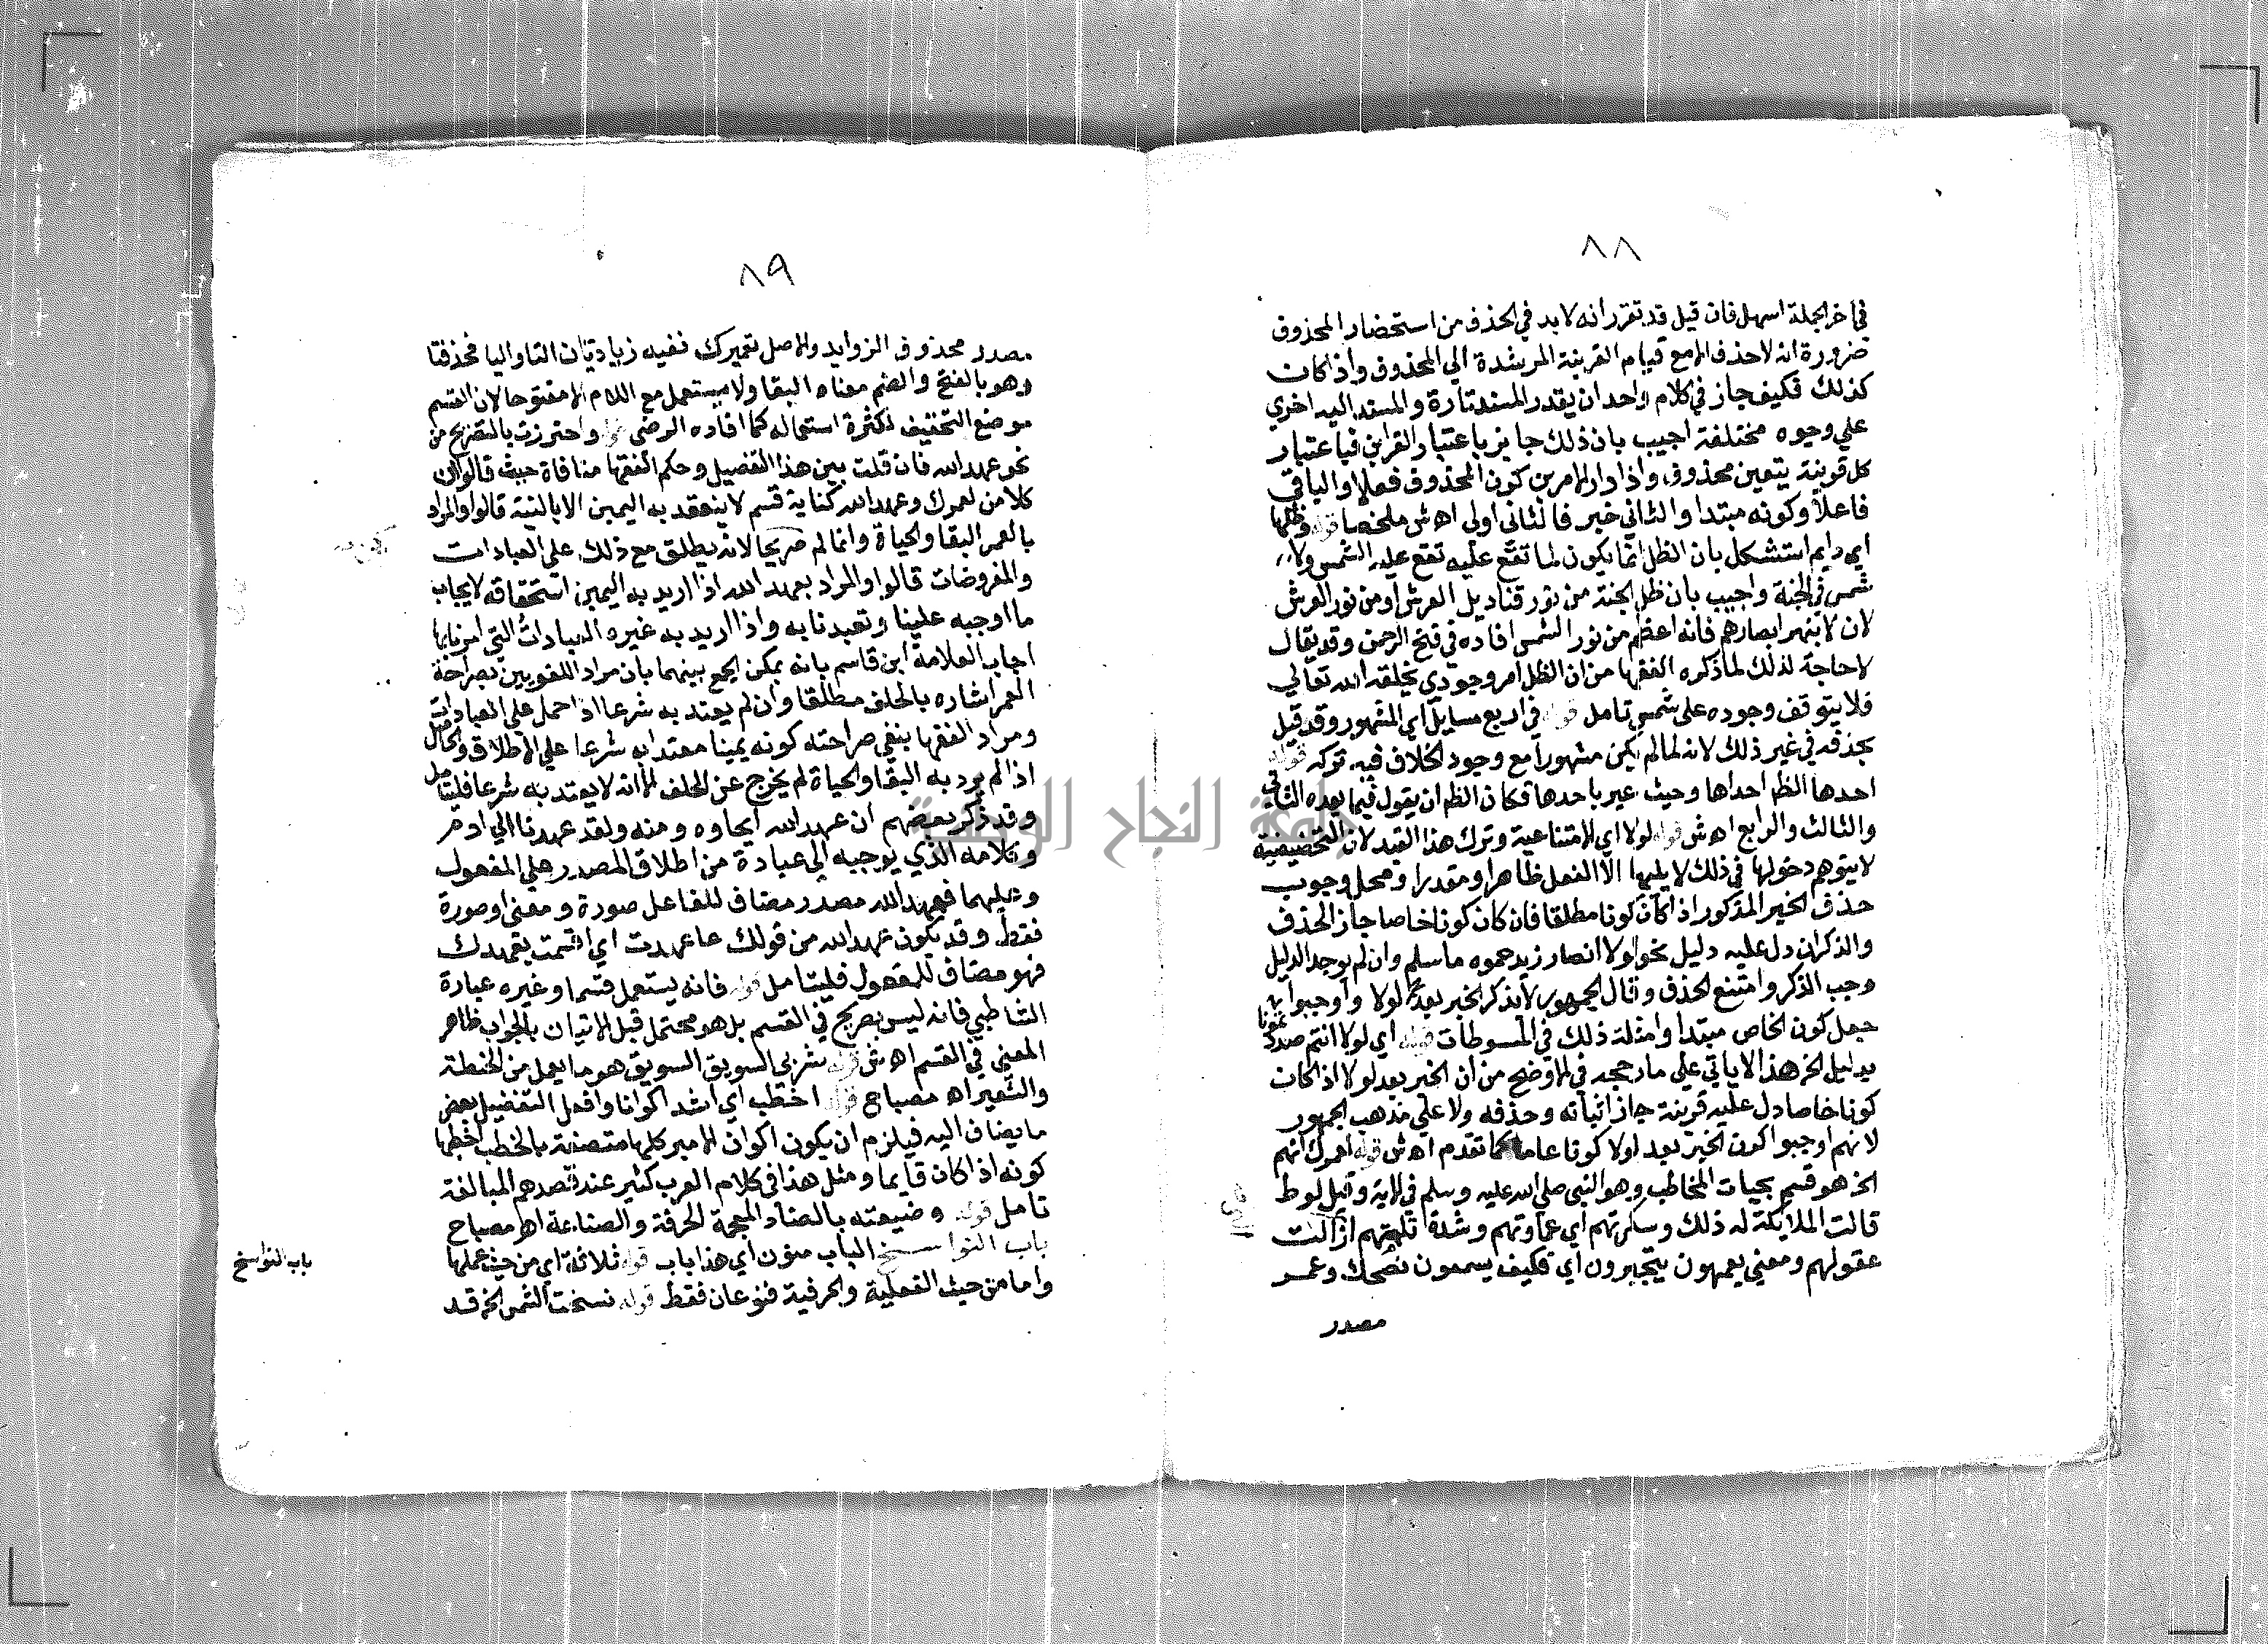 ٨٨
في اخر الجملة اسهل فان قيل قد تقرر انه لا بد في الحذف من استحضار المحذوف
ضرورة انه لا حذف الا مع قيام القرينة المرشدة الي المحذوف واذا كان
كذلك فكيف جاز في كلام واحد ان يقدر المسند تارة والمسند اليه اخري
علي وجوه مختلفة اجيب بان ذلك جايز باعتبار القراين فباعتبار
كل قرينة يتعين محذوف واذا دار الامر بين كون المحذوف فعلا والباقي
فاعلا وكونه مبتدا والثاني خبر فالثاني اولي اه ش ملخصا قوله وظلها
اي دايم استشكل بان الظل انما يكون لما تقع عليه تقع عليه الشمس ولا
شمس في الجنة واجيب بان ظل الجنة من نور قناديل العرش او من نور العرش
لان لا ينهر ابصارهم فانه اعظم من نور الشمس افاده في فتح الرحمن وقد يقال
لا حاجة لذلك لما ذكره الفقها من ان الظل امر وجودي يخلقه الله تعالي
فلا يتوقف وجوده علي شمس تامل قوله في اربع مسايل اي المشهور وقد قيل
بحذفه في غير ذلك لانه لما لم يكن مشهورا مع وجود الخلاف فيه تركه قوله
احدها الظ احداها وحيث عبر باحدها فكان الظ ان يقول فيما بعده الثاني
والثالث والرابع اه ش قوله لولا اي الامتناعية وترك هذا القيد لان التحضيضية
لا يتوهم دخولها في ذلك لا يليها الا الفعل ظاهرا ومقدرا ومحل وجوب
حذف الخبر المذكور اذا كان كونا مطلقا فان كان كونا خاصا جاز الحذف
والذكر ان دل عليه دليل نحو لولا انصار زيد حموه ما سلم وان لم يوجد الدليل
وجب الذكر وامتنع الحذف وقال الجمهور لا يذكر الخبر بعد لولا واوجبوا
جعل كون الخاص مبتدا وامثلة ذلك في المبسوطات قوله اي لولا انتم صددتمونا
بدليل الخ هذا الا ياتي علي ما رجحه في الاوضح من ان الخبر بعد لولا اذا كان
كونا خاصا دل عليه قرينة جاز اثباته وحذفه ولا علي مذهب الجمهور
لانهم اوجبوا كون الخبر بعد لولا كونا عاما كما تقدم اه ش قوله لعمرك انهم
الخ هو قسم بحيات المخاطب وهو النبي صلي الله عليه وسلم في الاية وقيل لوط
قالت الملايكة له ذلك وسكرتهم اي غماوتهم وشدة غلمتهم ازالت
عقولهم ومعني يعمهون يتحيرون اي فكيف يسمعون نصحك وعمر
مصدر
٨٩
مصدر محذوف الزوايد والاصل تعميرك ففيه زيادتان التا واليا فحذفتا
وهو بالفتح والضم معناه البقا ولا يستعمل مع اللام الا مفتوحا لان القسم
موضع التخفيف لكثرة استعماله كما افاده الرضي واحترزت بالتصريح من
نحو عهد الله فان قلت بين هذا التفصيل وحكم الفقها منافاة حيث قالوا ان
كلا من لعمرك وعهد الله كناية قسم لا ينعقد به اليمين الا بالنية قالوا والمراد
بالعمر البقا والحياة وانما لم صريحا لانه يطلق مع ذلك علي العبادات
والمفروضات قالوا والمراد بعهد الله اذا اريد به اليمين استحقاقه لايجاب
ما اوجبه علينا وتعبدنا به واذا اريد به غيره العبادات التي امرنا بها
اجاب العلامة ابن قاسم بانه يمكن الجمع بينهما بان مراد اللغويين بصراحة
العمر اشاره بالحلف مطلقا وان لم يعتد به شرعا اذا حمل علي العبادات
ومراد الفقها بنفي صراحته كونه يمينا معتدا به شرعا علي الاطلاق والحاصل
اذا لم يرد به البقا والحياة لم يخرج عن الحلف الا انه لا يعتد به شرعا فليتامل
وقد ذكر بعضهم ان عهد الله ايحاوه ومنه ولقد عهدنا الي ادم
وكلامه الذي يوجبه الي عبادة من اطلاق المصدر علي المفعول
وعليهما فعهد الله مصدر مضاف للفاعل صورة ومعني او صورة
فقط وقد يكون عهد الله من قولك عاعهدت اي اقسمت بتعهدك
فهو مضاف للمفعول فليتامل قوله فانه يستعمل قسما وغيره عبارة
الشاطبي فانه ليس بصريح في القسم بل هو محتمل قبل الاتيان بالجواب ظاهر
المعني في القسم اه ش قوله شربي السويق السويق هو ما يعمل من الحنطة
والشعير اه مصباح قوله اخطب اي اشد اكوانا وافعل التفضيل بعض
ما يضاف اليه فيلزم ان يكون اكوان الامير كلها متصفة بالخطب اخطبها
كونه اذا كان قايما ومثل هذا في كلام العرب كثير عند قصدهم المبالغة
تامل قوله وضيعته بالضاد المعجمة الحرفة والصناعة اه مصباح
باب النواسخ الباب منون اي هذا باب قوله ثلاثة اي من حيث عملها
واما من حيث الفعلية والحرفية فنوعان فقط قوله نسخت الشمس الخ قد
باب النواسخ
جامعة النجاح الوطنية